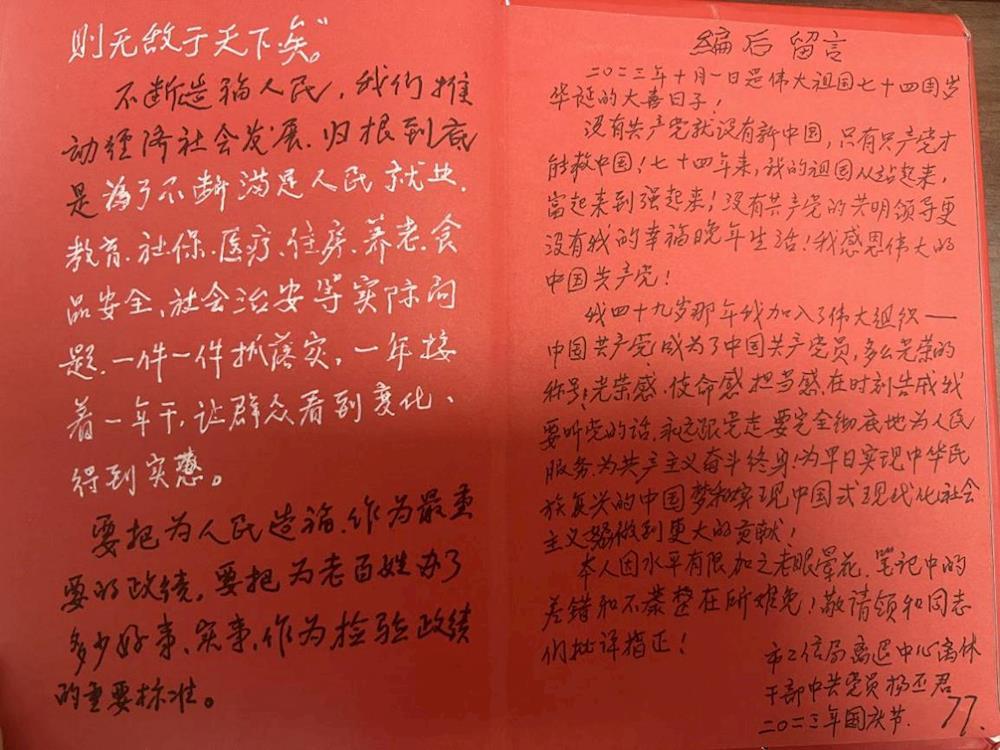 则无敌于天下矣。”
不断造福人民，我们推
动经济社会发展，归根到底
是为了不断满足人民就业、
教育、社保、医疗、住房、养老、食
品安全、社会治安等实际问
题，一件一件抓落实，一年接
着一年干，让群众看到变化、
得到实惠。
要把为人民造福作为最重
要的政绩，要把为老百姓办了
多少好事、实事，作为检验政绩
的重要标准。
编后留言
二〇二三年十月一日是伟大祖国七十四周岁
华诞的大喜日子！
没有共产党就没有新中国，只有共产党才
能救中国！七十四年来，我的祖国从站起来，
富起来到强起来！没有共产党的英明领导更
没有我的幸福晚年生活！我感恩伟大的
中国共产党！
我四十九岁那年我加入了伟大组织——
中国共产党，成为了中国共产党员，多么光荣的
称号；光荣感、使命感、担当感，在时刻告戒我
要听党的话，永远跟党走要完全彻底地为人民
服务为共产主义奋斗终身！为早日实现中华民
族复兴的中国梦和实现中国式现代化社会
主义强做到更大的贡献！
本人因水平有限加之老眼晕花，笔记中的
差错和不恭整在所难免！敬请领和同志
们批评指正！
市工信局离退中心离休
干部中共党员杨丕君
二〇二三年国庆节
77.